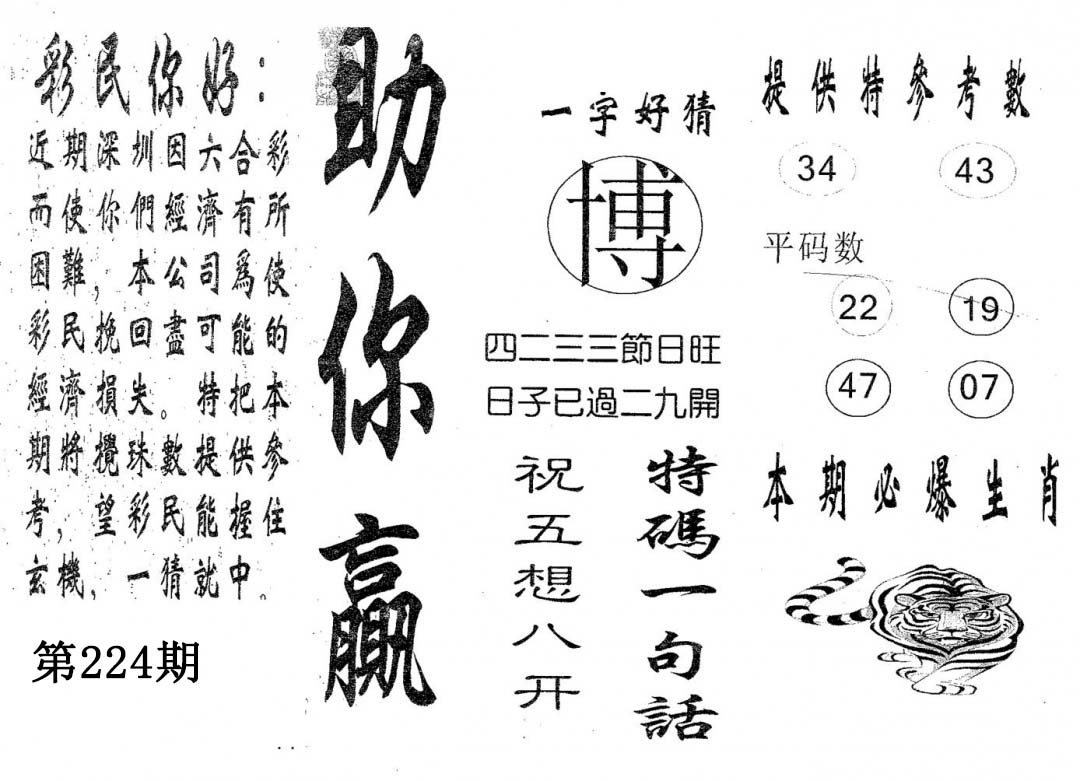 彩民你好：
近期深圳因六合彩
而使你們經濟有所
困難，本公司爲使
彩民挽回盡可能的
經濟損失。特把本
期將攪珠數提供參
考，望彩民能握住
玄機，一猜就中。
第224期
助你贏
一字好猜
博
四二三三節日旺
日子已過二九開
特碼一句話
祝五想八开
提供特參考數
34 43
平码数
22 19
47 07
本期必爆生肖